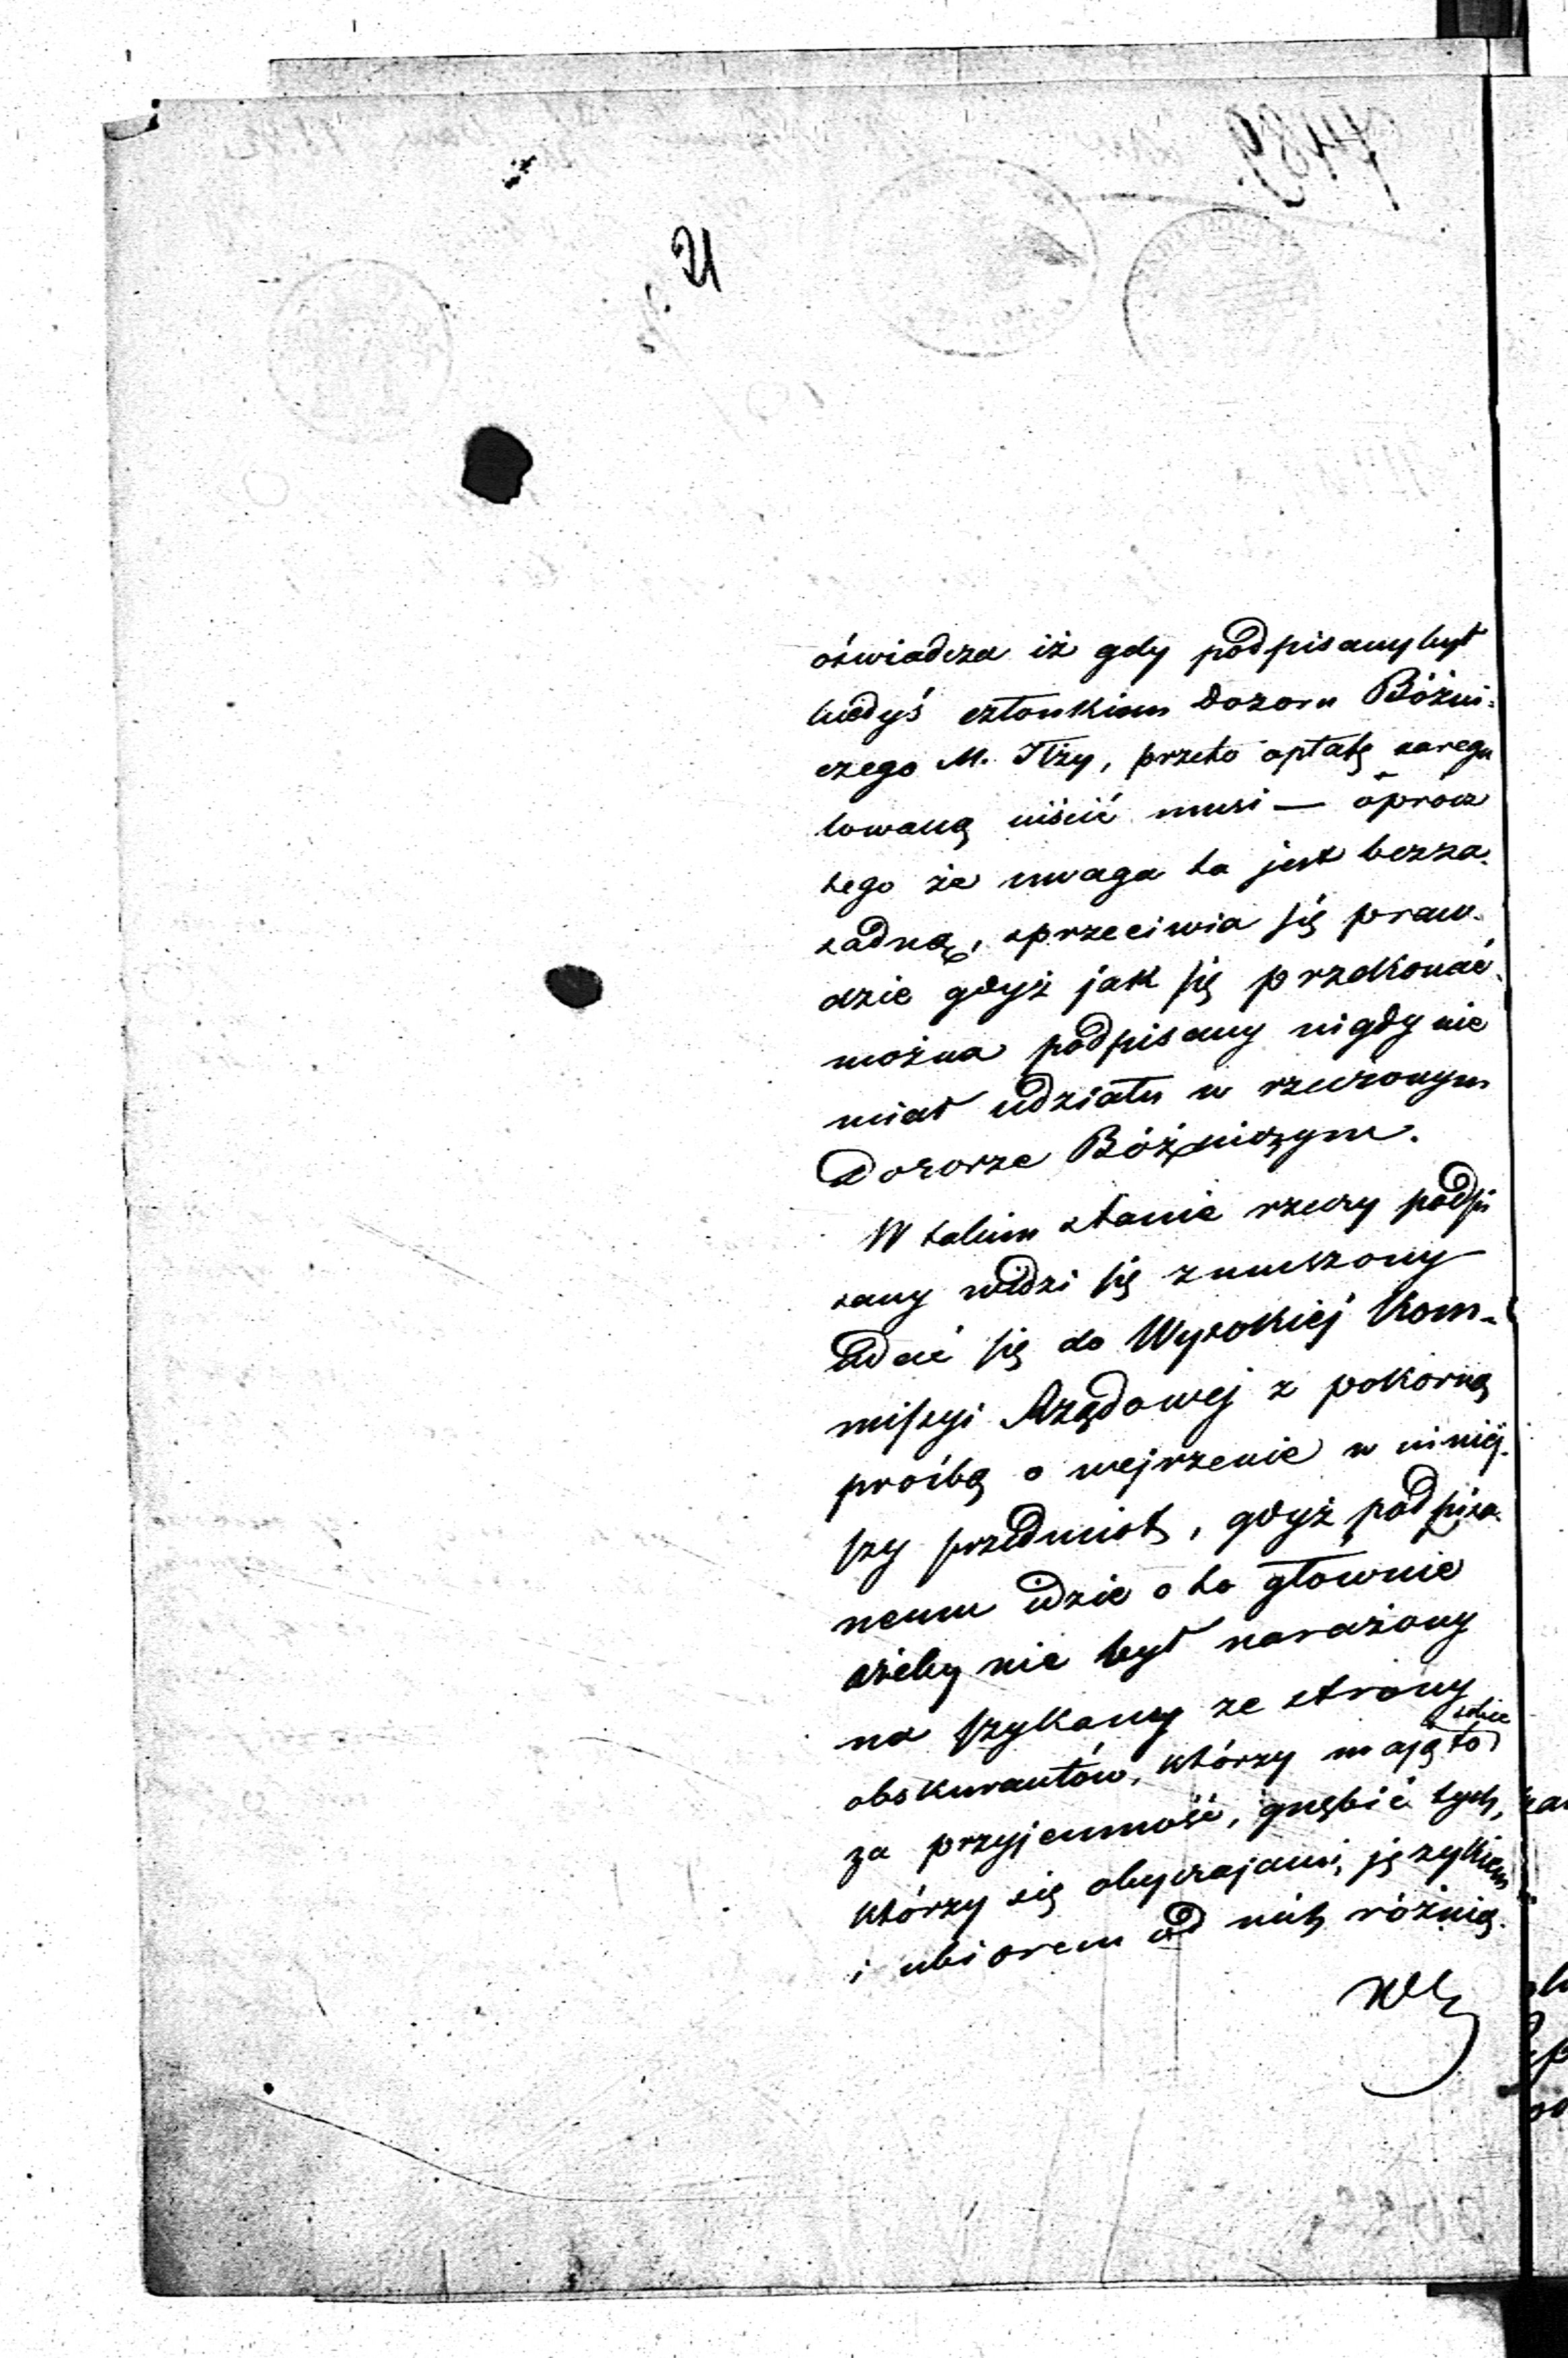 oświadcza iż gdy podpisany był
kiedyś członkiem Dozoru Bóżni-
czego M. Iłży, przeto opłatę zaregu
lowaną uiścić musi — oprócz
tego że uwaga ta jest bezza-
sadną, sprzeciwia się praw-
dzie gdyż jak się przekonać
można podpisany nigdy nie
miał udziału w rzeczonym
Dozorze Bóżniczym.
W takim stanie rzeczy podpi
sany widzi się zmuszony
udać się do Wysokiej Kom-
missyi Rządowej z pokorną
prośbą o wejrzenie w niniéj-
szy przedmiot, gdyż podpisa-
nemu idzie o to głównie
ażeby nie był narażony
na szykany ze strony
obskurantów, którzy mają to sobie
za przyjemność, gnębić tych,
którzy się obyczajami, językiem
i ubiorem od nich różnią.